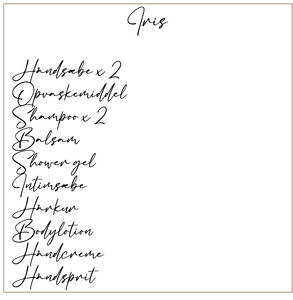 Iris
Håndsæbe x 2
Opvaskemiddel
Shampoo x 2
Balsam
Shower gel
Intimsæbe
Hårkur
Bodylotion
Håndcreme
Håndsprit